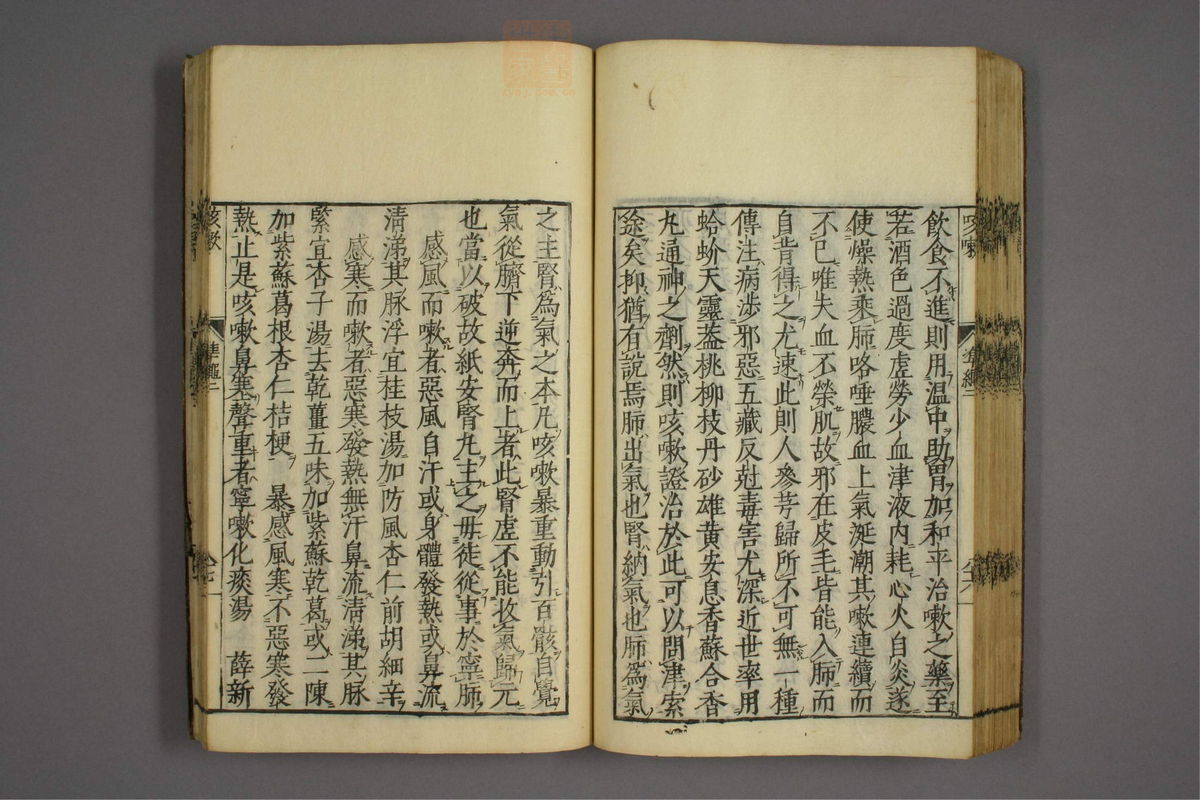 飲食不進則用温中助胃加和平治嗽之藥至
若酒色過度虛勞少血津液内耗心火自炎遂
使燥熱乘肺咯唾膿血上氣涎潮其嗽連續而
不已唯夫血不榮肌故邪在皮毛皆能入肺而
自背得之尤速此則人參芎歸所不可無一種
傳注病涉邪惡五藏反尅毒害尤深近世率用
蛤蚧天靈蓋桃柳枝丹砂雄黄安息香蘇合香
丸通神之劑然則咳嗽證治於此可以問津索
途矣抑猶有說焉肺出氣也腎納氣也肺爲氣
咳嗽
準繩二
之主腎爲氣之本凡咳嗽暴重動引百骸自覺
氣從臍下逆奔而上者此腎虛不能收氣歸元
也當以破故紙安腎丸主之毋徒從事於寧肺
感風而嗽者惡風自汗或身體發熱或鼻流
清涕其脉浮宜桂枝湯加防風杏仁前胡細辛
感寒而嗽者惡寒發熱無汗鼻流清涕其脉
緊宜杏子湯去乾薑五味加紫蘇乾葛或二陳
加紫蘇葛根杏仁桔梗 暴感風寒不惡寒發
熱止是咳嗽鼻塞聲重者寧嗽化痰湯 薛新
咳嗽
準繩二